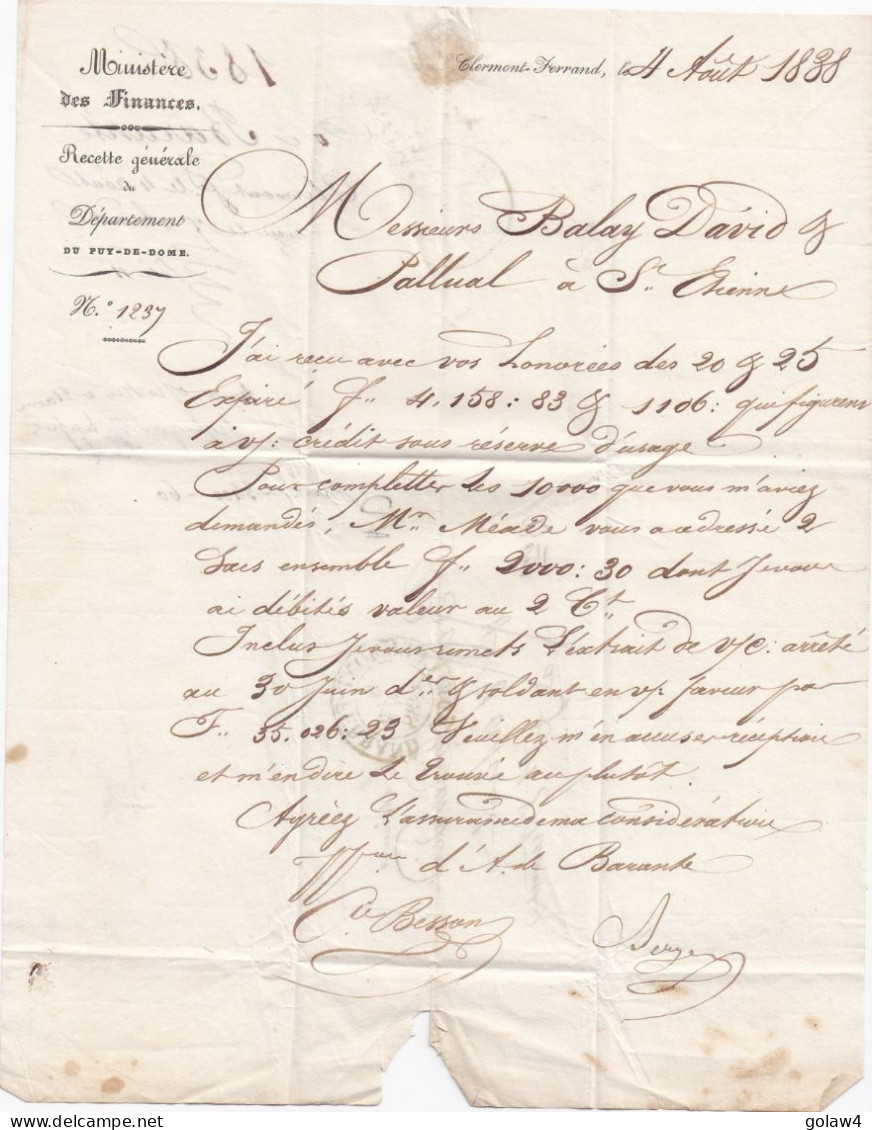 Ministère
des Finances.
Recette générale
du
Département
DU PUY-DE-DOME.
N.º 1237
Clermont-Ferrand, le 4 Août 1838
Messieurs Balay David &
Pallual à St. Etienne
J'ai reçu avec vos honorées des 20 & 25
Expiré f.. 4.158: 83 & 1106: qui figurent
à v/: crédit sous réserve d'usage
Pour completter les 10000 que vous m'aviez
demandés, Mr. Méade vous a adressé 2
Sacs ensemble f.. 2000: 30 dont Je vous
ai débités valeur au 2 Ct.
Inclus Je vous remets L'extrait de v/c: arrêté
au 30 Juin der. & soldant en v/. faveur par
F.. 35.026: 23 Veuillez m'en accuser réception
et m'en dire Le trouvé au plutôt
Agréez L'assurance de ma considération
d'A. de Barante
Besson
golaw4